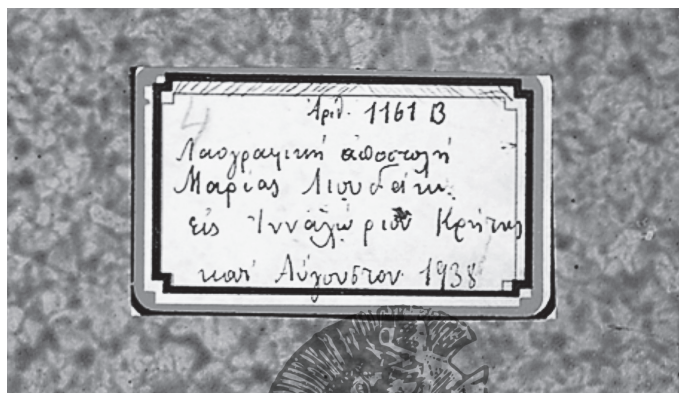 Ἀριθ. 1161 Β
Λαογραφική αποστολή
Μαρίας Λιουδάκη.
εἰς Ἰννάχώριον Κρήτης
κατ' Αύγουστον 1938